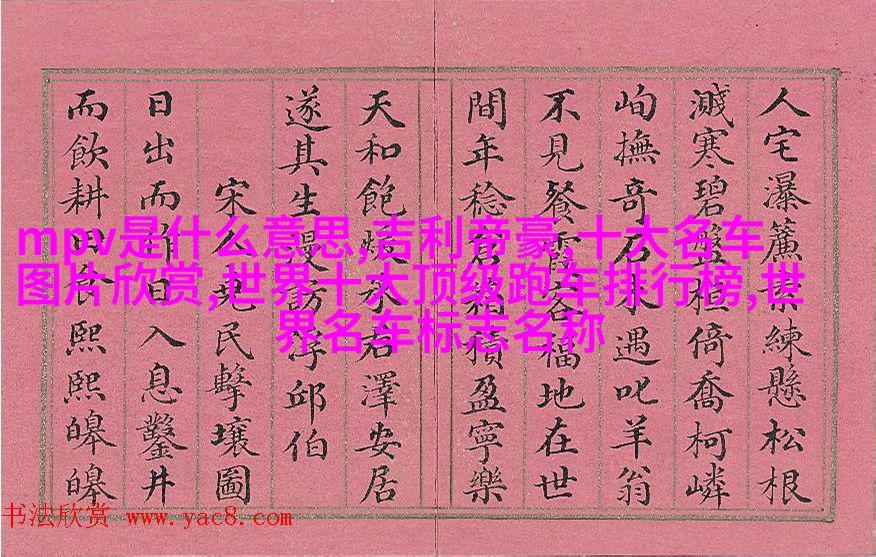 人宅瀑簾練懸松根
濺寒碧盤桓倚喬柯嶙
峋撫奇石未遇叱羊翁
不見餐霞客福地在世
間年稔倉箱積盈寧樂
天和飽煖承君澤安居
遂其生謾訪浮邱伯
宋人堯民擊壤圖
日出而作日入息鑿井
而飲耕田食熙熙皞皞
mpv是什么意思,吉利帝豪,十大名车
图片欣赏,世界十大顶级跑车排行榜,世
界名车标志名称
书法欣赏 www.yac8.com